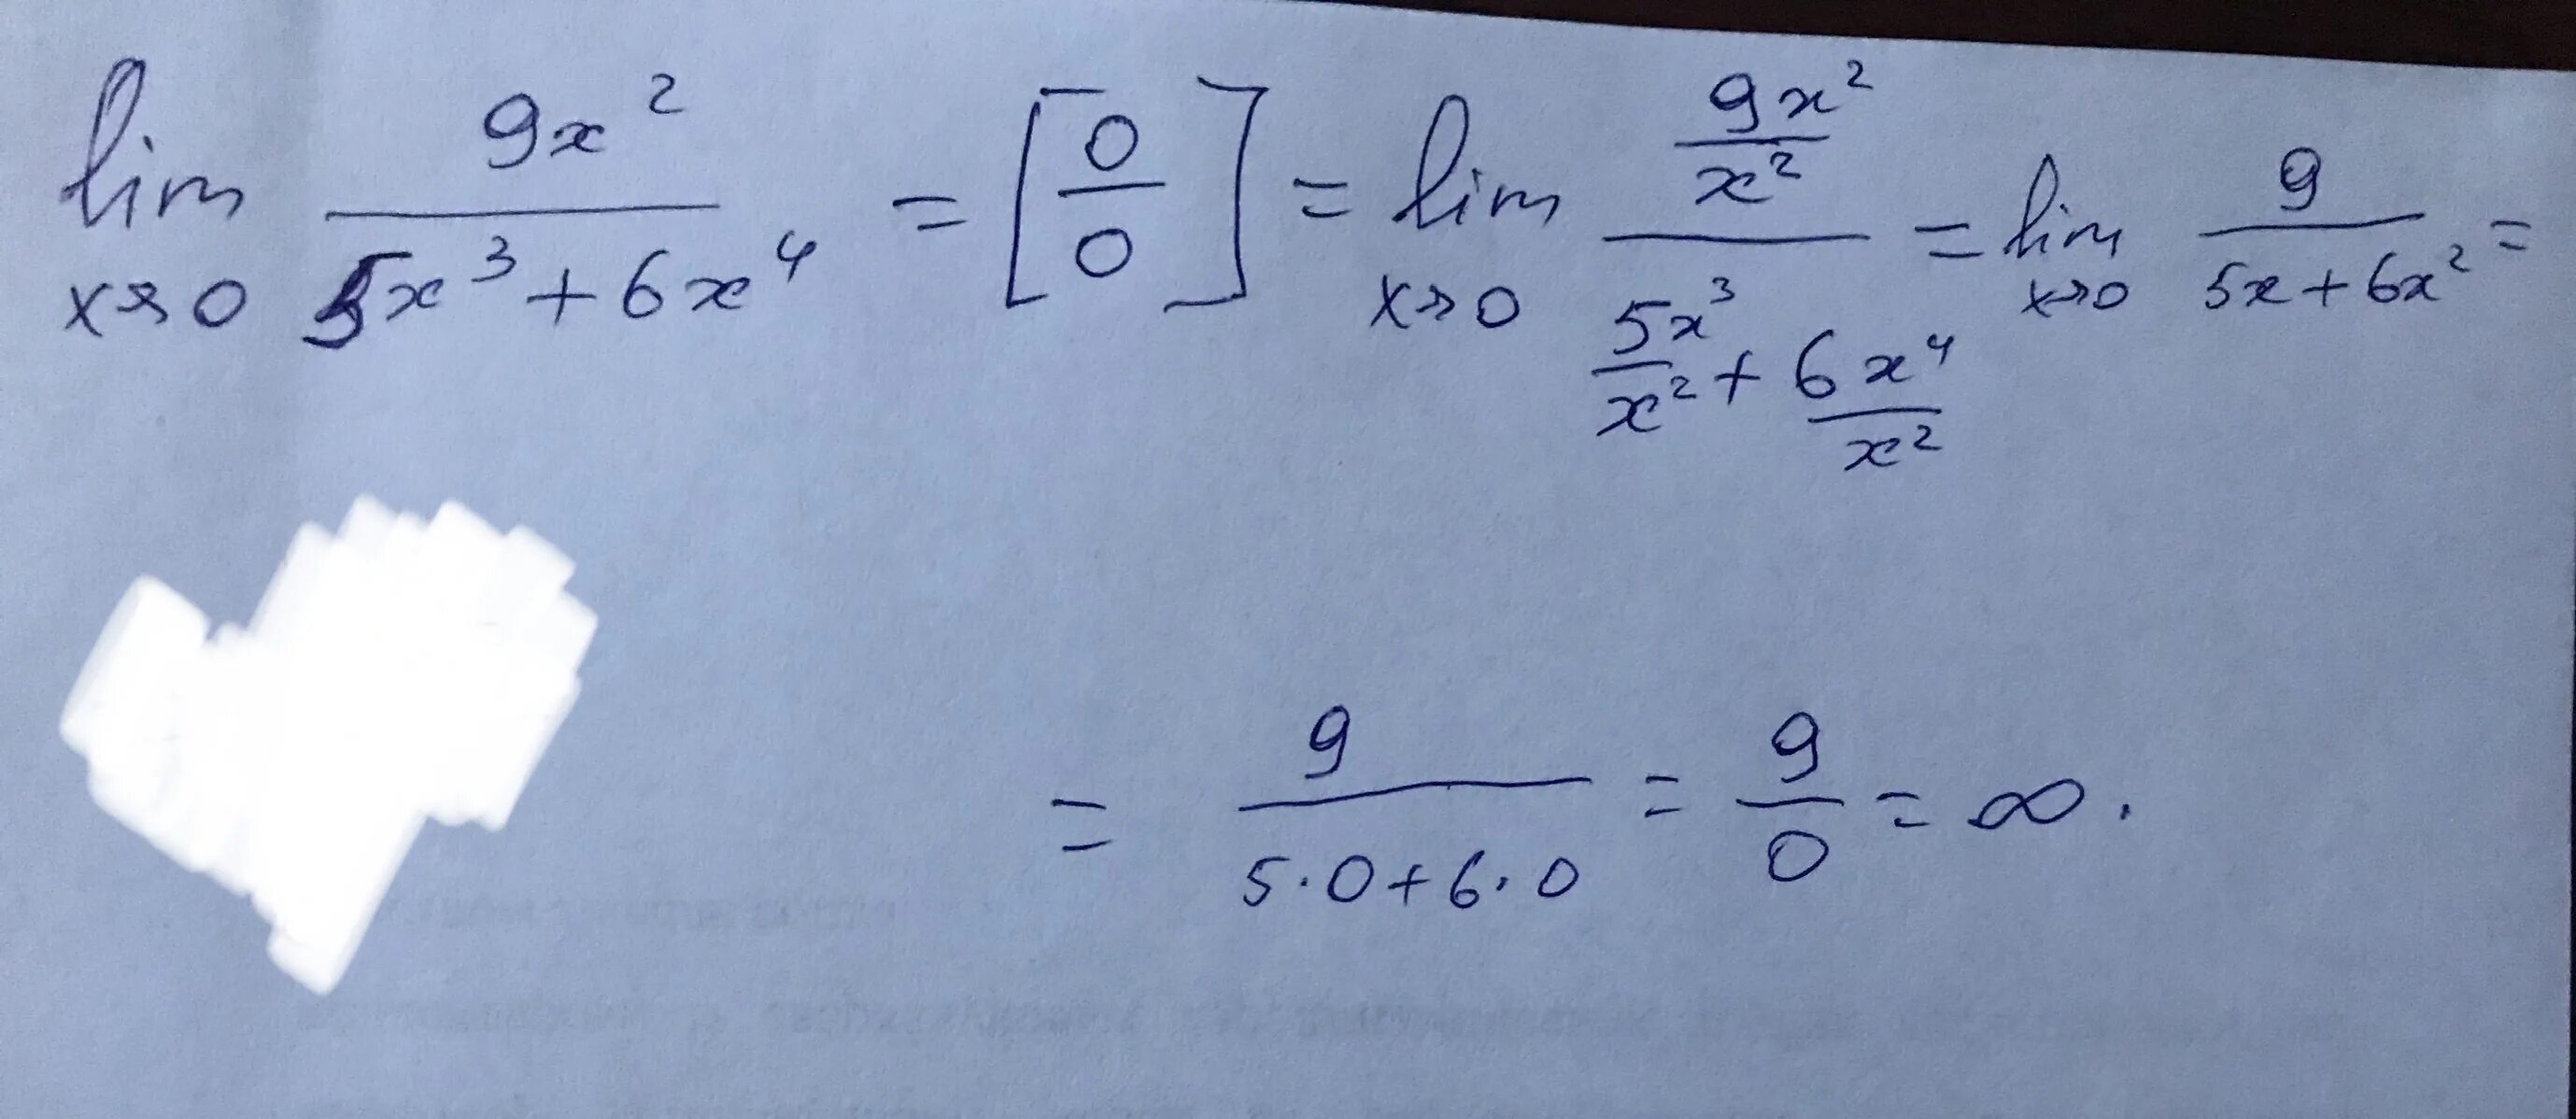 lim x→0 9x²/(5x³+6x⁴) = [0/0] = lim x→0 (9x²/x²)/(5x³/x²+6x⁴/x²) = lim x→0 9/(5x+6x²) =
= 9/(5·0+6·0) = 9/0 = ∞.